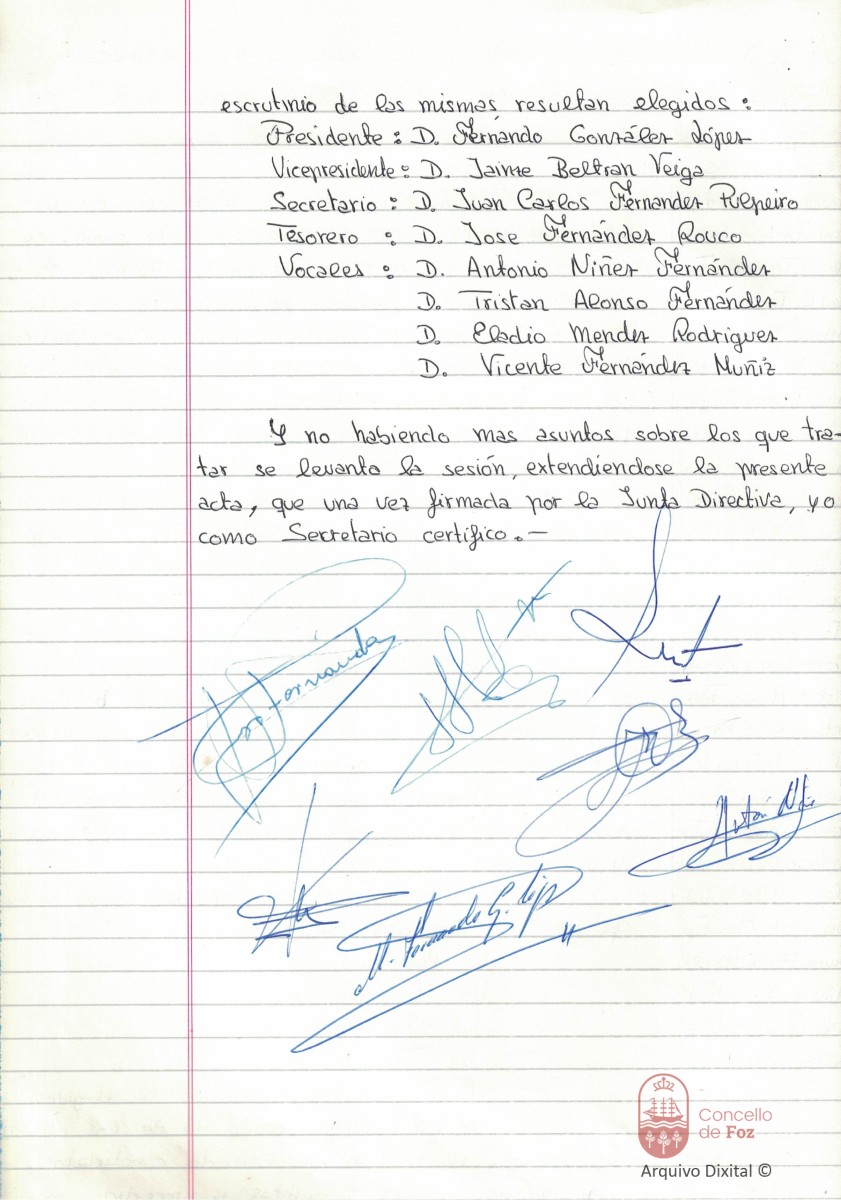 escrutinio de las mismas resultan elegidos:
Presidente: D. Fernando González López
Vicepresidente: D. Jaime Beltran Veiga
Secretario: D. Juan Carlos Fernandez Pulpeiro
Tesorero: D. Jose Fernández Rouco
Vocales: D. Antonio Niñez Fernández
D. Tristan Alonso Fernández
D. Eladio Mendez Rodriguez
D. Vicente Fernández Muñiz
Y no habiendo mas asuntos sobre los que tra-
tar se levanta la sesión, extendiendose la presente
acta, que una vez firmada por la Junta Directiva, yo
como Secretario certifico.-
Concello
de Foz
Arquivo Dixital ©